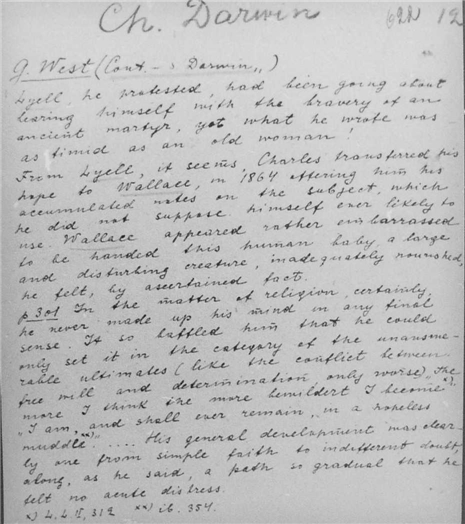 Ch. Darwin
12
G. West (Cont. - s Darwin„)
Lyell, he protested, had been going about
bearing himself with the bravery of an
ancient martyr, yet what he wrote was
as timid as an old woman!
From Lyell, it seems Charles transferred his
hope to Wallace, in 1864 offering him his
accumulated notes on the subject, which
he did not suppose himself ever likely to
use. Wallace appeared rather embarrassed
to be handed this human baby, a large
and disturbing creature, inadequately nourished,
he felt, by ascertained fact.
p 301 In the matter of religion, certainly,
he never made up his mind in any final
sense. It so baffled him that he could
only set it in the category of the unanswe-
rable ultimates (like the conflict between
free will and determination only worse) „The
more I think the more bewildert I become" x).
„I am, and shall ever remain, in a hopeless
muddle" xx) .... His general development was clear-
ly one from simple faith to indifferent doubt,
along, as he said, a path so gradual that he
felt no acute distress.
x) L.L. II, 312 xx) ib. 354.